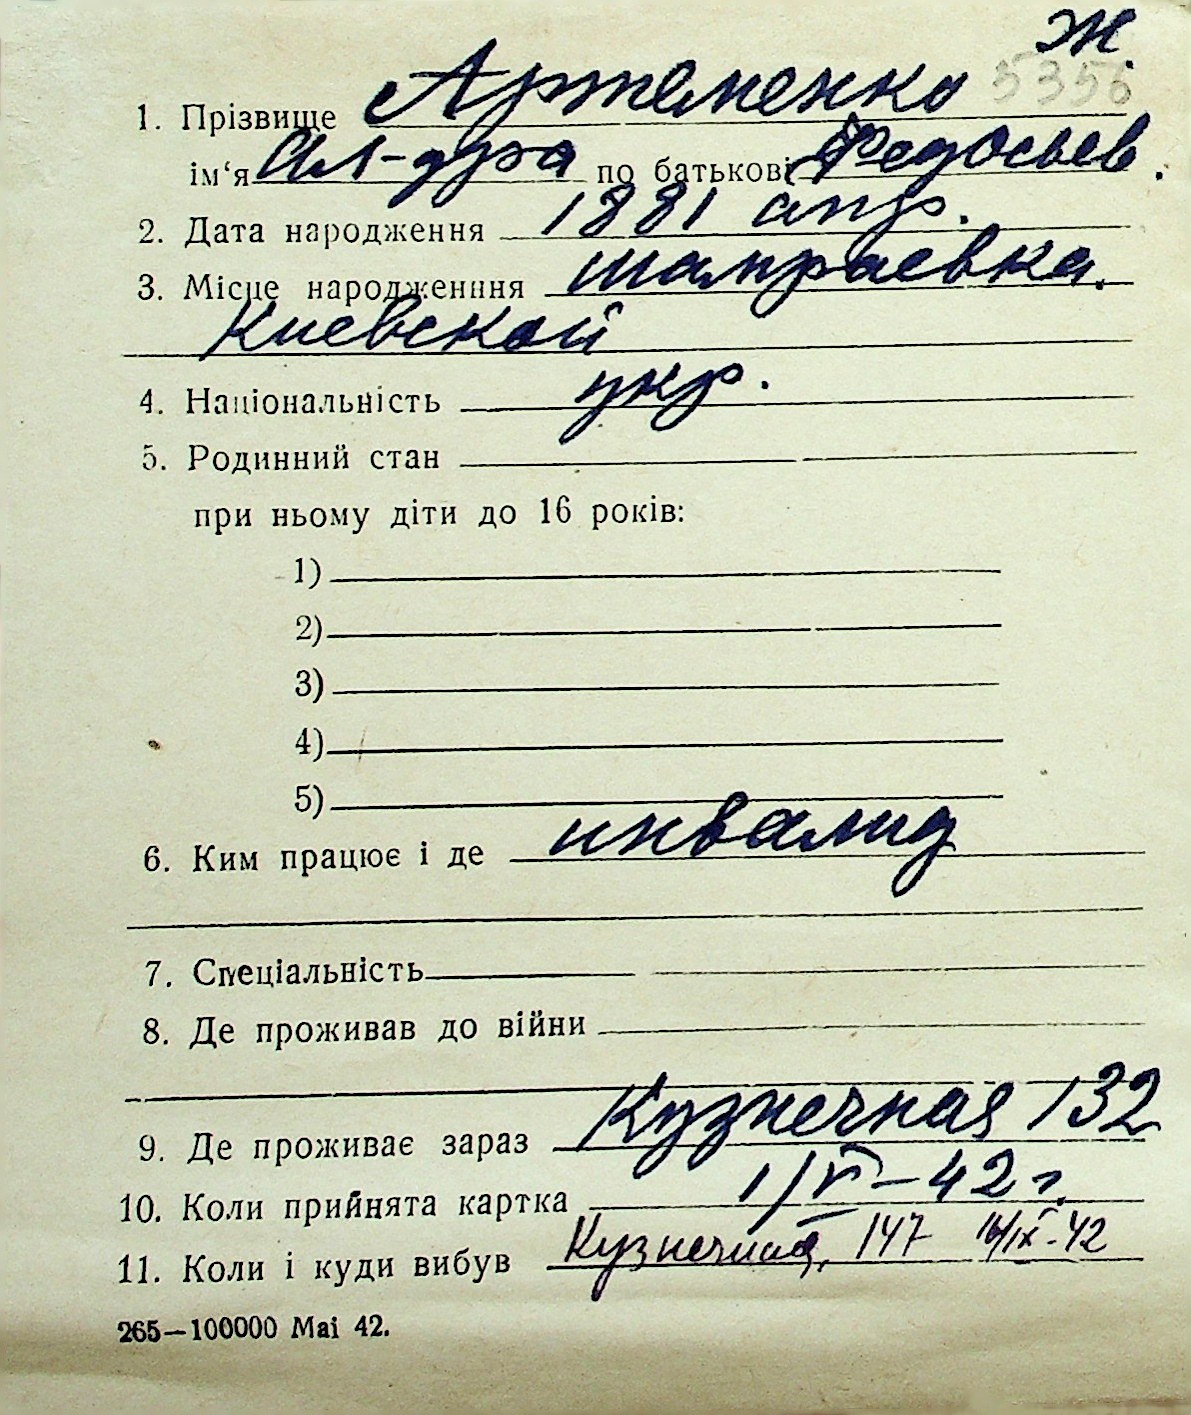 Ж
5356
1. Прізвище Артеменко
ім‘я Ал-дра по батькові Федосьев.
2. Дата народження 1881 апр.
3. Місце народженння Шамраевка.
Киевской
4. Національність укр.
5. Родинний стан
при ньому діти до 16 років:
1)
2)
3)
4)
5)
6. Ким працює і де инвалид
7. Спеціальність
8. Де проживав до війни
9. Де проживає зараз Кузнечная 132
10. Коли прийнята картка 1/V-42 г.
11. Коли і куди вибув Кузнечная, 147 16/IX-42
265—100000 Маі 42.